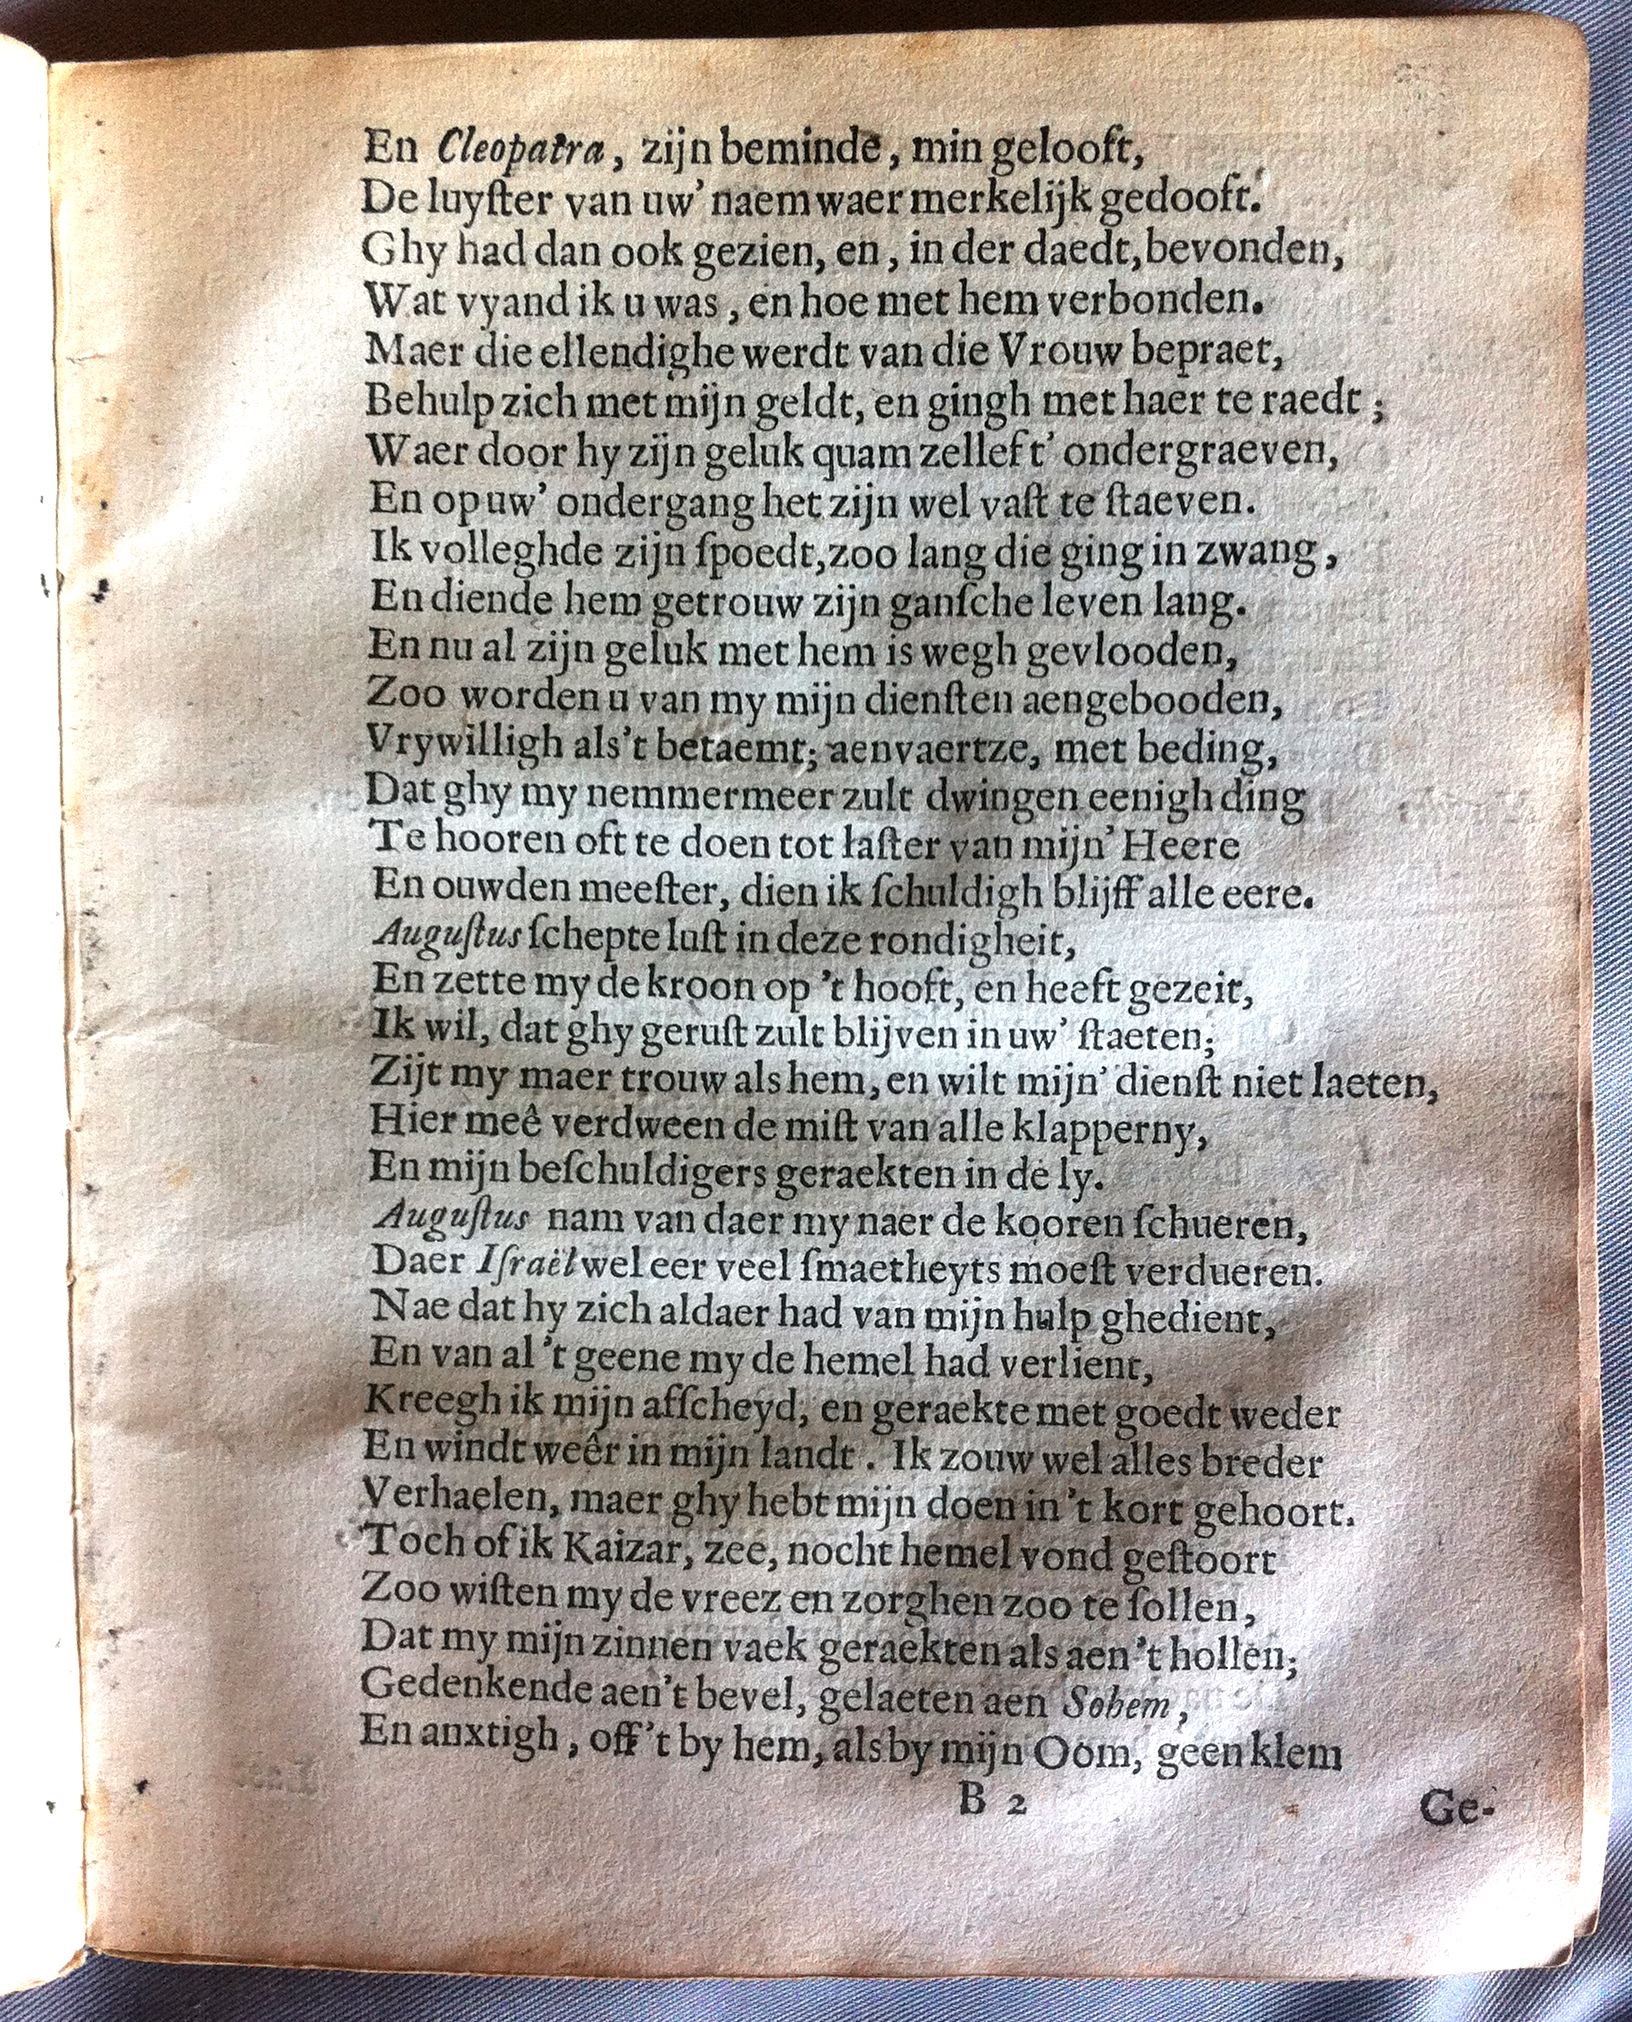 En Cleopatra, zijn beminde, min gelooft,
De luyſter van uw' naem waer merkelijk gedooft.
Ghy had dan ook gezien, en, in der daedt, bevonden,
Wat vyand ik u was, en hoe met hem verbonden.
Maer die ellendighe werdt van die Vrouw bepraet,
Behulp zich met mijn geldt, en gingh met haer te raedt;
Waer door hy zijn geluk quam zelleft' ondergraeven,
En op uw' ondergang het zijn wel vaſt te ſtaeven.
Ik volleghde zijn ſpoedt, zoo lang die ging in zwang,
En diende hem getrouw zijn ganſche leven lang.
En nu al zijn geluk met hem is wegh gevlooden,
Zoo worden u van my mijn dienſten aengebooden,
Vrywilligh als't betaemt; aenvaertze, met beding,
Dat ghy my nemmermeer zult dwingen eenigh ding
Te hooren oft te doen tot laſter van mijn' Heere
En ouwden meeſter, dien ik ſchuldigh blijff alle eere.
Auguſtus ſchepte luſt in deze rondigheit,
En zette my de kroon op 't hooft, en heeft gezeit,
Ik wil, dat ghy geruſt zult blijven in uw' ſtaeten;
Zijt my maer trouw als hem, en wilt mijn' dienſt niet laeten,
Hier meê verdween de miſt van alle klapperny,
En mijn beſchuldigers geraekten in de ly.
Auguſtus nam van daer my naer de kooren ſchueren,
Daer Iſraël wel eer veel ſmaetheyts moeſt verdueren.
Nae dat hy zich aldaer had van mijn hulp ghedient,
En van al 't geene my de hemel had verlient,
Kreegh ik mijn afſcheyd, en geraekte met goedt weder
En windt weêr in mijn landt. Ik zouw wel alles breder
Verhaelen, maer ghy hebt mijn doen in 't kort gehoort.
Toch of ik Kaizar, zee, nocht hemel vond geſtoort
Zoo wiſten my de vreez en zorghen zoo te ſollen,
Dat my mijn zinnen vaek geraekten als aen 't hollen;
Gedenkende aen't bevel, gelaeten aen Sohem,
En anxtigh, off 't by hem, als by mijn Oom, geen klem
B 2
Ge-